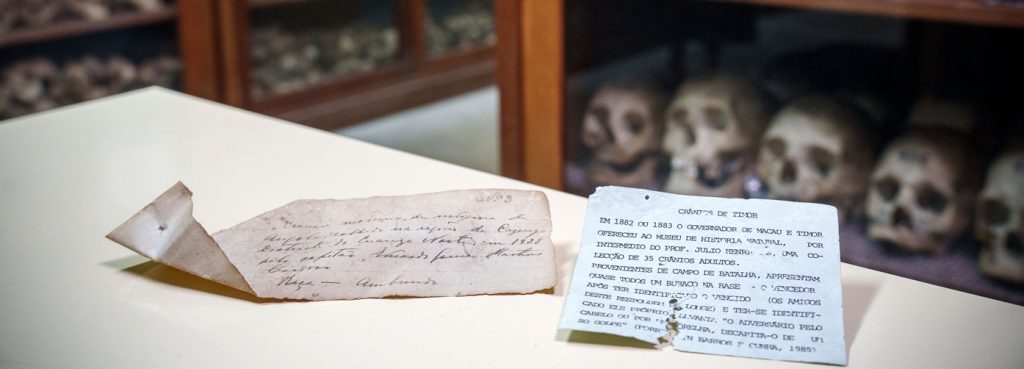 Crânio de indígena de
Angola colhido na região do
do Cuanza Norte, em 1928
pelo capitão
Raça — Ambundo
CRÂNIOS DE TIMOR
EM 1882 OU 1883 O GOVERNADOR DE MACAU E TIMOR
OFERECEU AO MUSEU DE HISTÓRIA NATURAL, POR
INTERMEDIO DO PROF. JULIO UMA CO-
LECÇÃO DE 35 CRÂNIOS ADULTOS.
PROVENIENTES DE CAMPO DE BATALHA, APRESENTAM
QUASE TODOS UM BURACO NA BASE - O VENCEDOR
APÓS TER IDENTIFICADO O VENCIDO (OS AMIGOS
DESTE RESPONDEM LONGE) E TER-SE IDENTIFI-
CADO ELE PRÓPRIO, LEVANTA "O ADVERSÁRIO PELO
CABELO OU POR ORELHA, DECAPITA-O DE UM
SO GOLPE" BARROS E CUNHA, 1985)